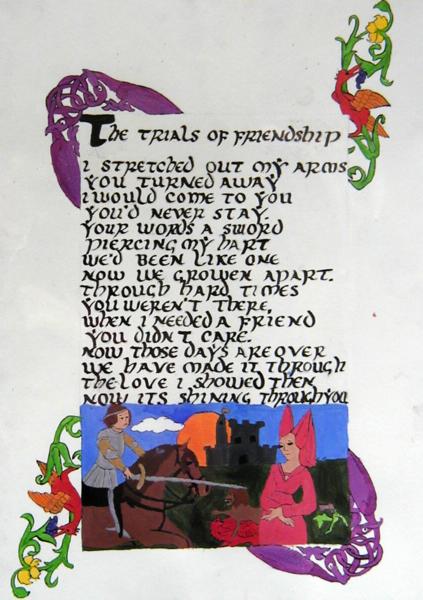 The Trials of Friendship
I stretched out my arms
you turned away
I would come to you
you'd never stay.
your words a sword
piercing my hart
we'd been like one
now we growen apart.
Through hard times
you weren't there,
when I needed a friend
you didn't care.
Now those days are over
we have made it through
the love I showed then
now its shining through you